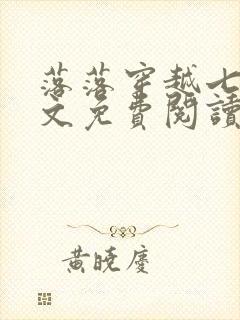 落落穿越七
文免費閱讀
黃曉慶